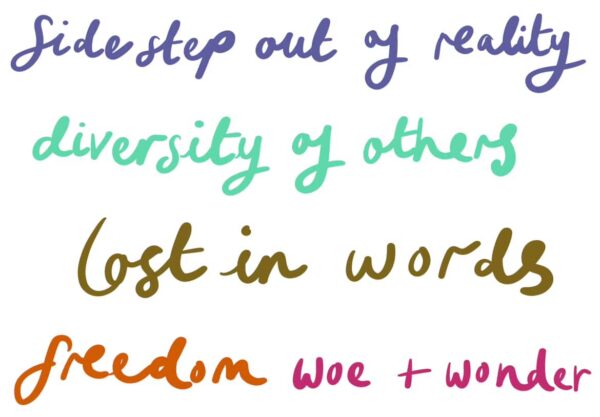 Sidestep out of reality
diversity of others
Lost in words
freedom woe + wonder